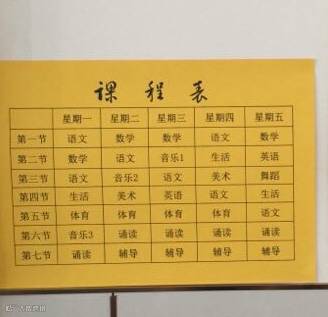 课程表
星期一 星期二 星期三 星期四 星期五
第一节 语文 数学 数学 语文 数学
第二节 数学 语文 音乐1 生活 英语
第三节 语文 音乐2 语文 美术 舞蹈
第四节 生活 美术 英语 语文 生活
第五节 体育 体育 体育 体育 语文
第六节 音乐3 诵读 诵读 诵读 诵读
第七节 诵读 辅导 辅导 辅导 辅导